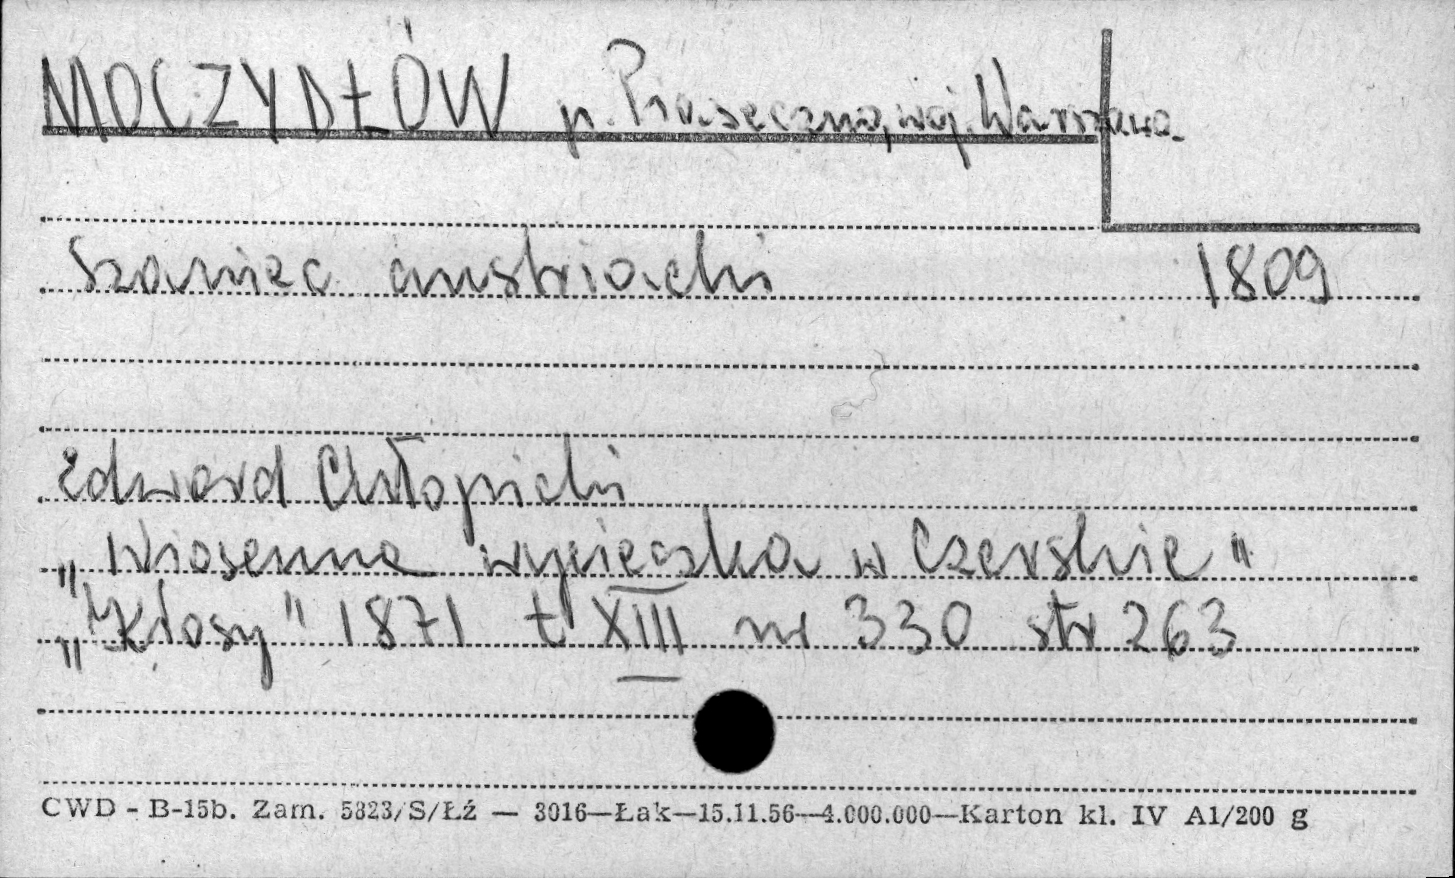 MOCZYDŁÓW p. Piaseczno, woj. Warszawa
Szaniec austriacki 1809
Edward Chłopicki
„Wiosenna wycieczka w Czerskie"
„Kłosy" 1871 t XIII nr 330 str 263
CWD - B-15b. Zam. 5823/S/Łź — 3016—Łak—15.11.56—4.000.000—Karton kl. IV A1/200 g